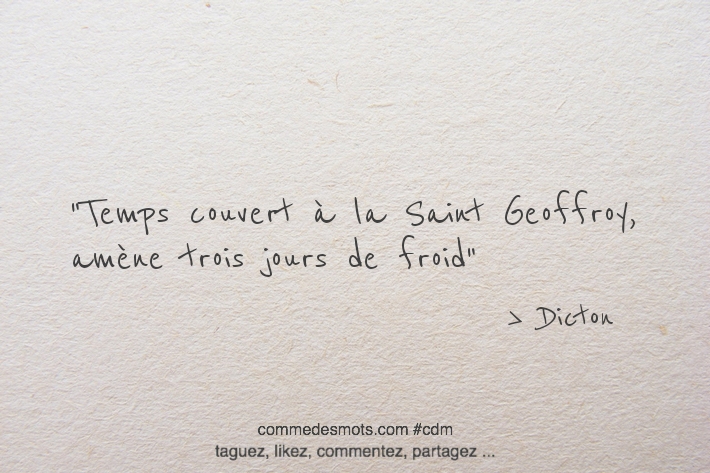 "Temps couvert à la Saint Geoffroy,
amène trois jours de froid"
> Dicton
commedesmots.com #cdm
taguez, likez, commentez, partagez ...